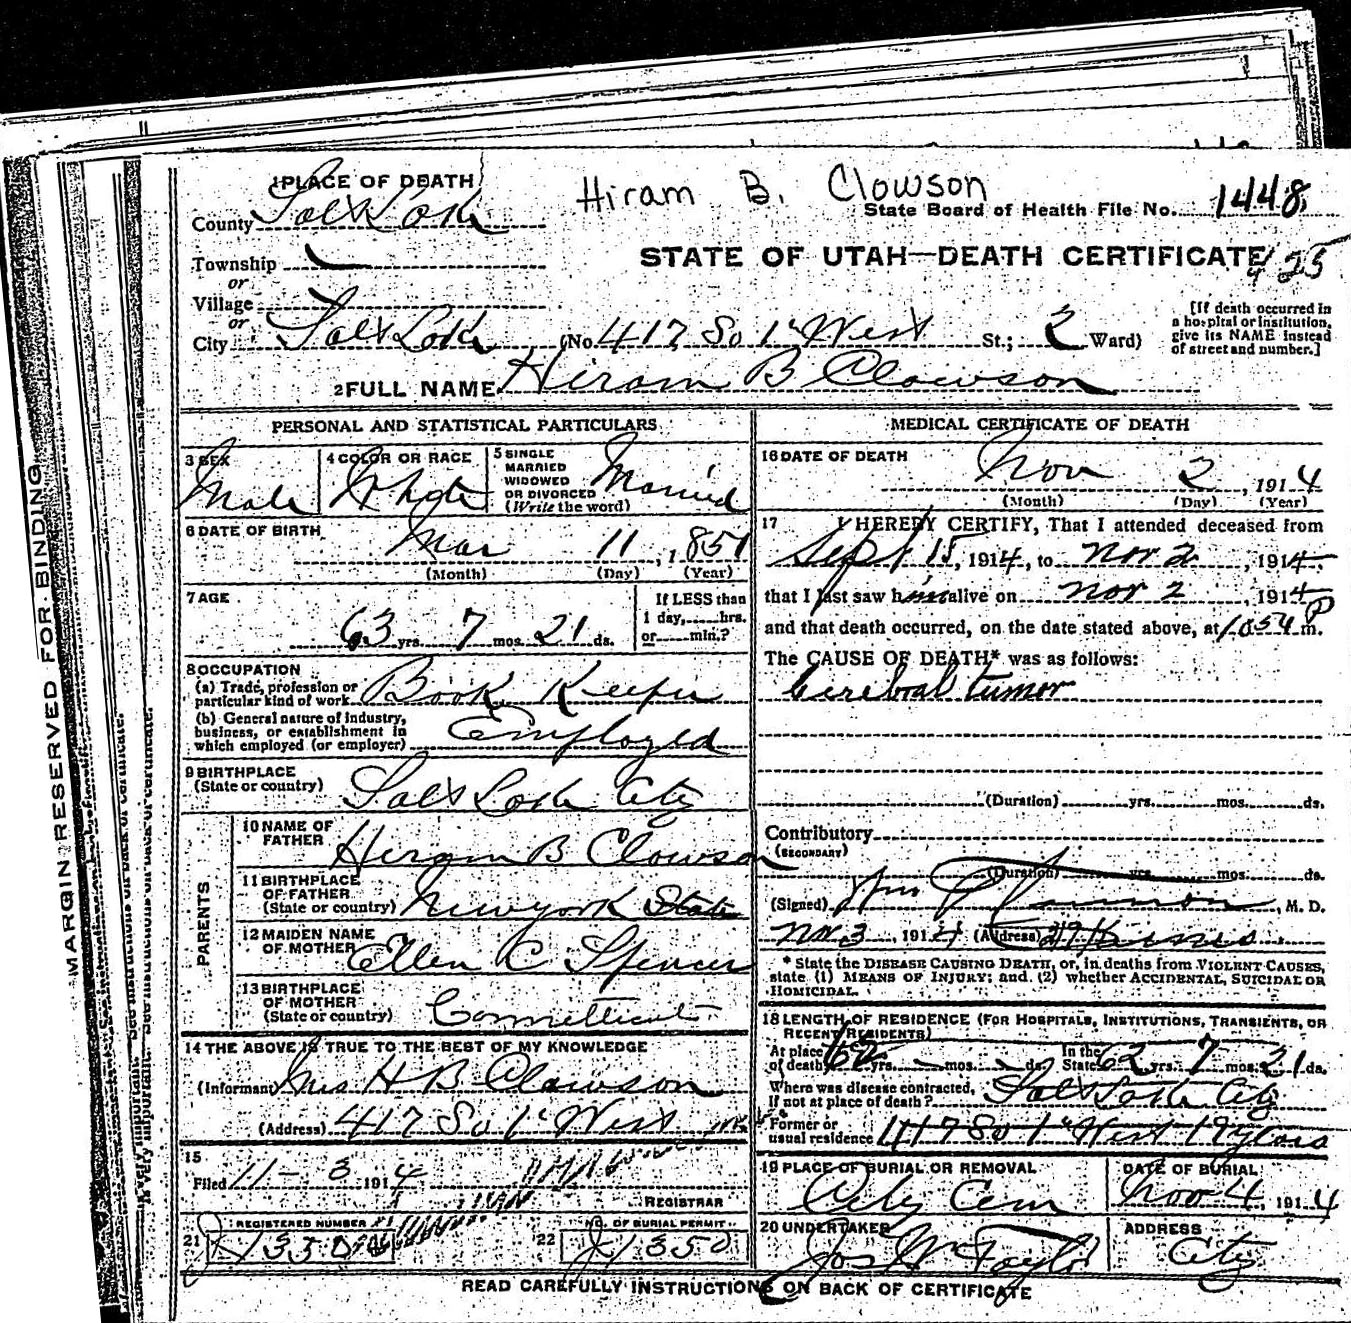 Hiram B. Clowson
1 PLACE OF DEATH
County Salt Lake
State Board of Health File No. 1448
Township
or
STATE OF UTAH—DEATH CERTIFICATE
425
Village
or
City Salt Lake (No. 417 So 1st West St.; 2 Ward)
[If death occurred in a hospital or institution, give its NAME instead of street and number.]
2 FULL NAME Hiram B Clawson
PERSONAL AND STATISTICAL PARTICULARS
3 SEX Male
4 COLOR OR RACE White
5 SINGLE MARRIED WIDOWED OR DIVORCED (Write the word) Married
6 DATE OF BIRTH Mar 11, 1851
(Month) (Day) (Year)
7 AGE 63 yrs. 7 mos. 21 ds.
If LESS than 1 day,......hrs. or......min.?
8 OCCUPATION
(a) Trade, profession or particular kind of work Book Keeper
(b) General nature of industry, business, or establishment in which employed (or employer) Employed
9 BIRTHPLACE (State or country) Salt Lake City
PARENTS
10 NAME OF FATHER Hiram B Clawson
11 BIRTHPLACE OF FATHER (State or country) New York State
12 MAIDEN NAME OF MOTHER Ellen C Spencer
13 BIRTHPLACE OF MOTHER (State or country) Connetticut
14 THE ABOVE IS TRUE TO THE BEST OF MY KNOWLEDGE
(Informant) Mrs H B Clawson
(Address) 417 So 1st West
15
Filed 11-3 1914
REGISTRAR
21 REGISTERED NUMBER J1350
22 NO. OF BURIAL PERMIT J1350
MEDICAL CERTIFICATE OF DEATH
16 DATE OF DEATH Nov 2, 1914
(Month) (Day) (Year)
17 I HEREBY CERTIFY, That I attended deceased from
Sept 15, 1914, to Nov 2, 1914,
that I last saw him alive on Nov 2, 1914
and that death occurred, on the date stated above, at 1054 P m.
The CAUSE OF DEATH* was as follows:
Cerebral tumor
(Duration) yrs. mos. ds.
Contributory
(SECONDARY)
(Duration) yrs. mos. ds.
(Signed) Wm, M. D.
Nov 3, 1914 (Address)
* State the DISEASE CAUSING DEATH, or, in deaths from VIOLENT CAUSES,
state (1) MEANS OF INJURY; and (2) whether ACCIDENTAL, SUICIDAL OR
HOMICIDAL.
18 LENGTH OF RESIDENCE (FOR HOSPITALS, INSTITUTIONS, TRANSIENTS, OR
RECENT RESIDENTS)
At place of death 62 yrs. mos. ds. In the State 62 yrs. 7 mos. 21 ds.
Where was disease contracted, If not at place of death? Salt Lake City
Former or usual residence 417 So 1st West 19 years
19 PLACE OF BURIAL OR REMOVAL City Cem
DATE OF BURIAL Nov 4, 1914
20 UNDERTAKER Jos W Taylor
ADDRESS City
READ CAREFULLY INSTRUCTIONS ON BACK OF CERTIFICATE
MARGIN RESERVED FOR BINDING